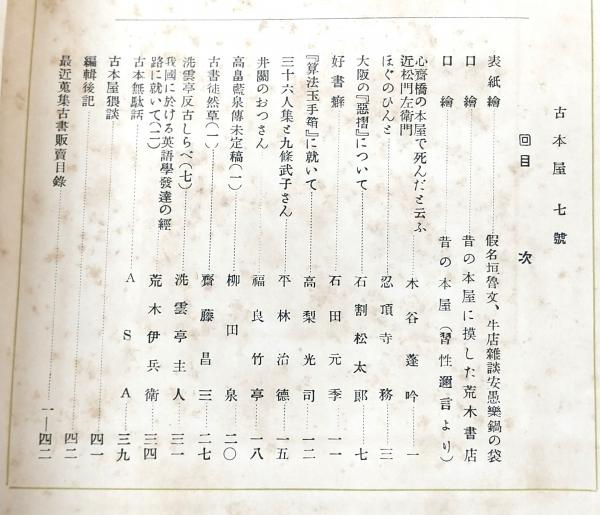 古本屋 七號
目次
表紙繪 假名垣魯文、牛店雜談安愚樂鍋の袋
口繪 昔の本屋に摸した荒木書店
口繪 昔の本屋（習性邇言より）
心齋橋の本屋で死んだと云ふ
近松門左衞門 木谷蓬吟 一
ほぐのひんと 忍頂寺務 三
大阪の『惡摺』について 石割松太郎 七
好書癖 石田元季 一一
『算法玉手箱』に就いて 高梨光司 一二
三十六人集と九條武子さん 平林治德 一五
井關のおつさん 福良竹亭 一八
高畠藍泉傳未定稿（一） 柳田泉 二〇
古書徒然草（一） 齋藤昌三 二七
洗雲亭反古しらべ（七） 洗雲亭主人 三一
我國に於ける英語學發達の經
路に就いて（二） 荒木伊兵衞 三四
古本無駄話 ＡＳＡ 三九
古本屋猥談
編輯後記 四一
最近蒐集古書販賣目錄 一—四二